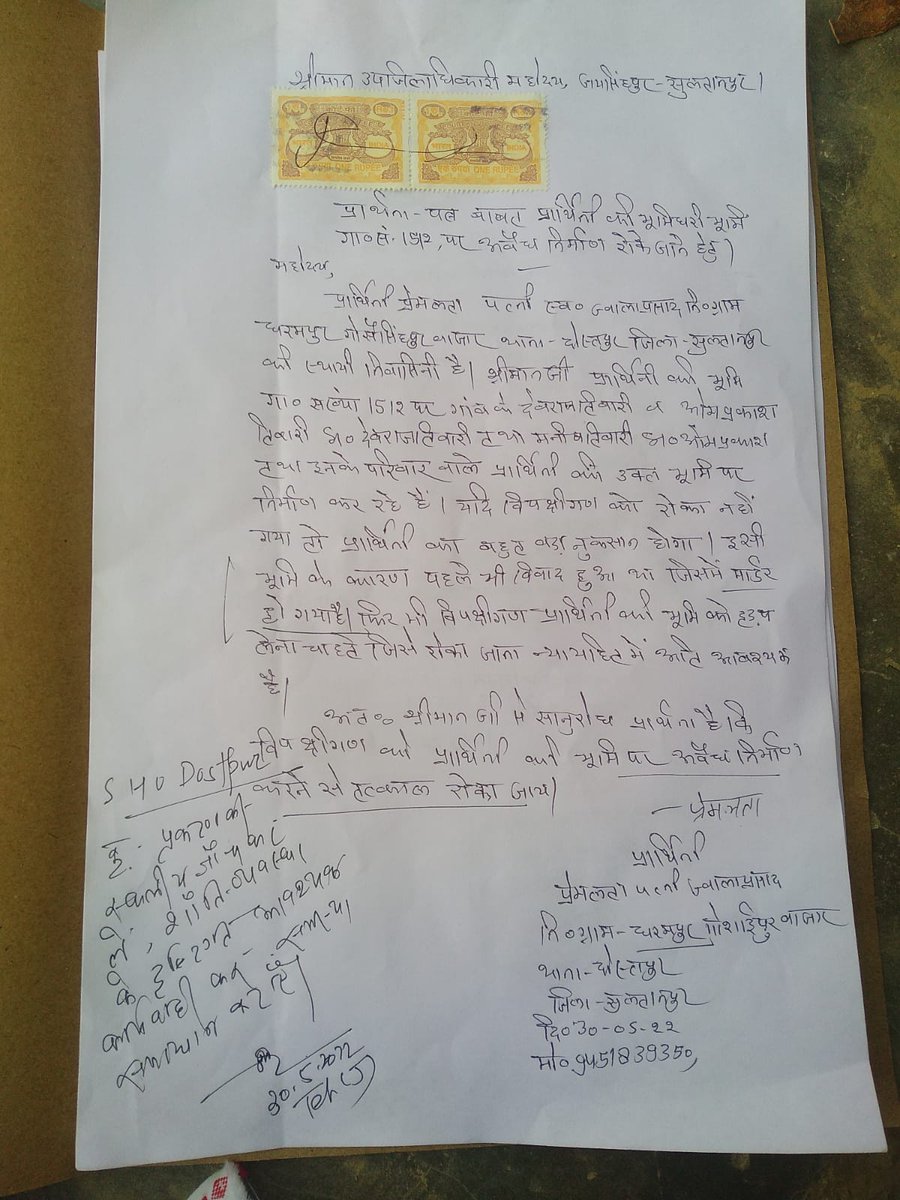 श्रीमान उपजिलाधिकारी महोदय, जयसिंहपुर-सुलतानपुर।
INDIA
INDIA
ONE RUPEE
ONE RUPEE
प्रार्थना-पत्र बाबत प्रार्थिनी की भूमिधरी भूमि
गा०सं. 1512, पर अवैध निर्माण रोके जाने हेतु।
महोदय,
प्रार्थिनी प्रेमलता पत्नी स्व० ज्वालाप्रसाद नि०ग्राम
धरमपुर बाजार थाना-दोस्तपुर जिला-सुलतानपुर
की स्थायी निवासिनी है। श्रीमान जी प्रार्थिनी की भूमि
गा० संख्या 1512 पर गांव के देवराजतिवारी व ओमप्रकाश
तिवारी S/० देवराजतिवारी तथा मनीषतिवारी S/०ओमप्रकाश
तथा इनके परिवार वाले प्रार्थिनी की उक्त भूमि पर
निर्माण कर रहे हैं। यदि विपक्षीगण को रोका नहीं
गया तो प्रार्थिनी का बहुत बड़ा नुकसान होगा। इसी
भूमि के कारण पहले भी विवाद हुआ था जिसमें मार्डर
हो गया है। फिर भी विपक्षीगण प्रार्थिनी की भूमि को हड़प
लेना चाहते जिसे रोका जाना न्यायहित में अति आवश्यक
है।
अतः श्रीमान जी से सानुरोध प्रार्थना है कि
विपक्षीगण को प्रार्थिनी की भूमि पर अवैध निर्माण
करने से तत्काल रोका जाय।
प्रेमलता
प्रार्थिनी
प्रेमलता पत्नी ज्वालाप्रसाद
नि०ग्राम-धरमपुर गोशाईपुर बाजार
थाना-दोस्तपुर
जिला-सुलतानपुर
दि० 30-05-22
मो० 9451839350,
SHO Dostpur
प्रकरण की
स्थलीय जाँच कर
लें, शांति-व्यवस्था
के दृष्टिगत आवश्यक
कार्यवाही कर समस्या
समाधान करें।
30.5.2022